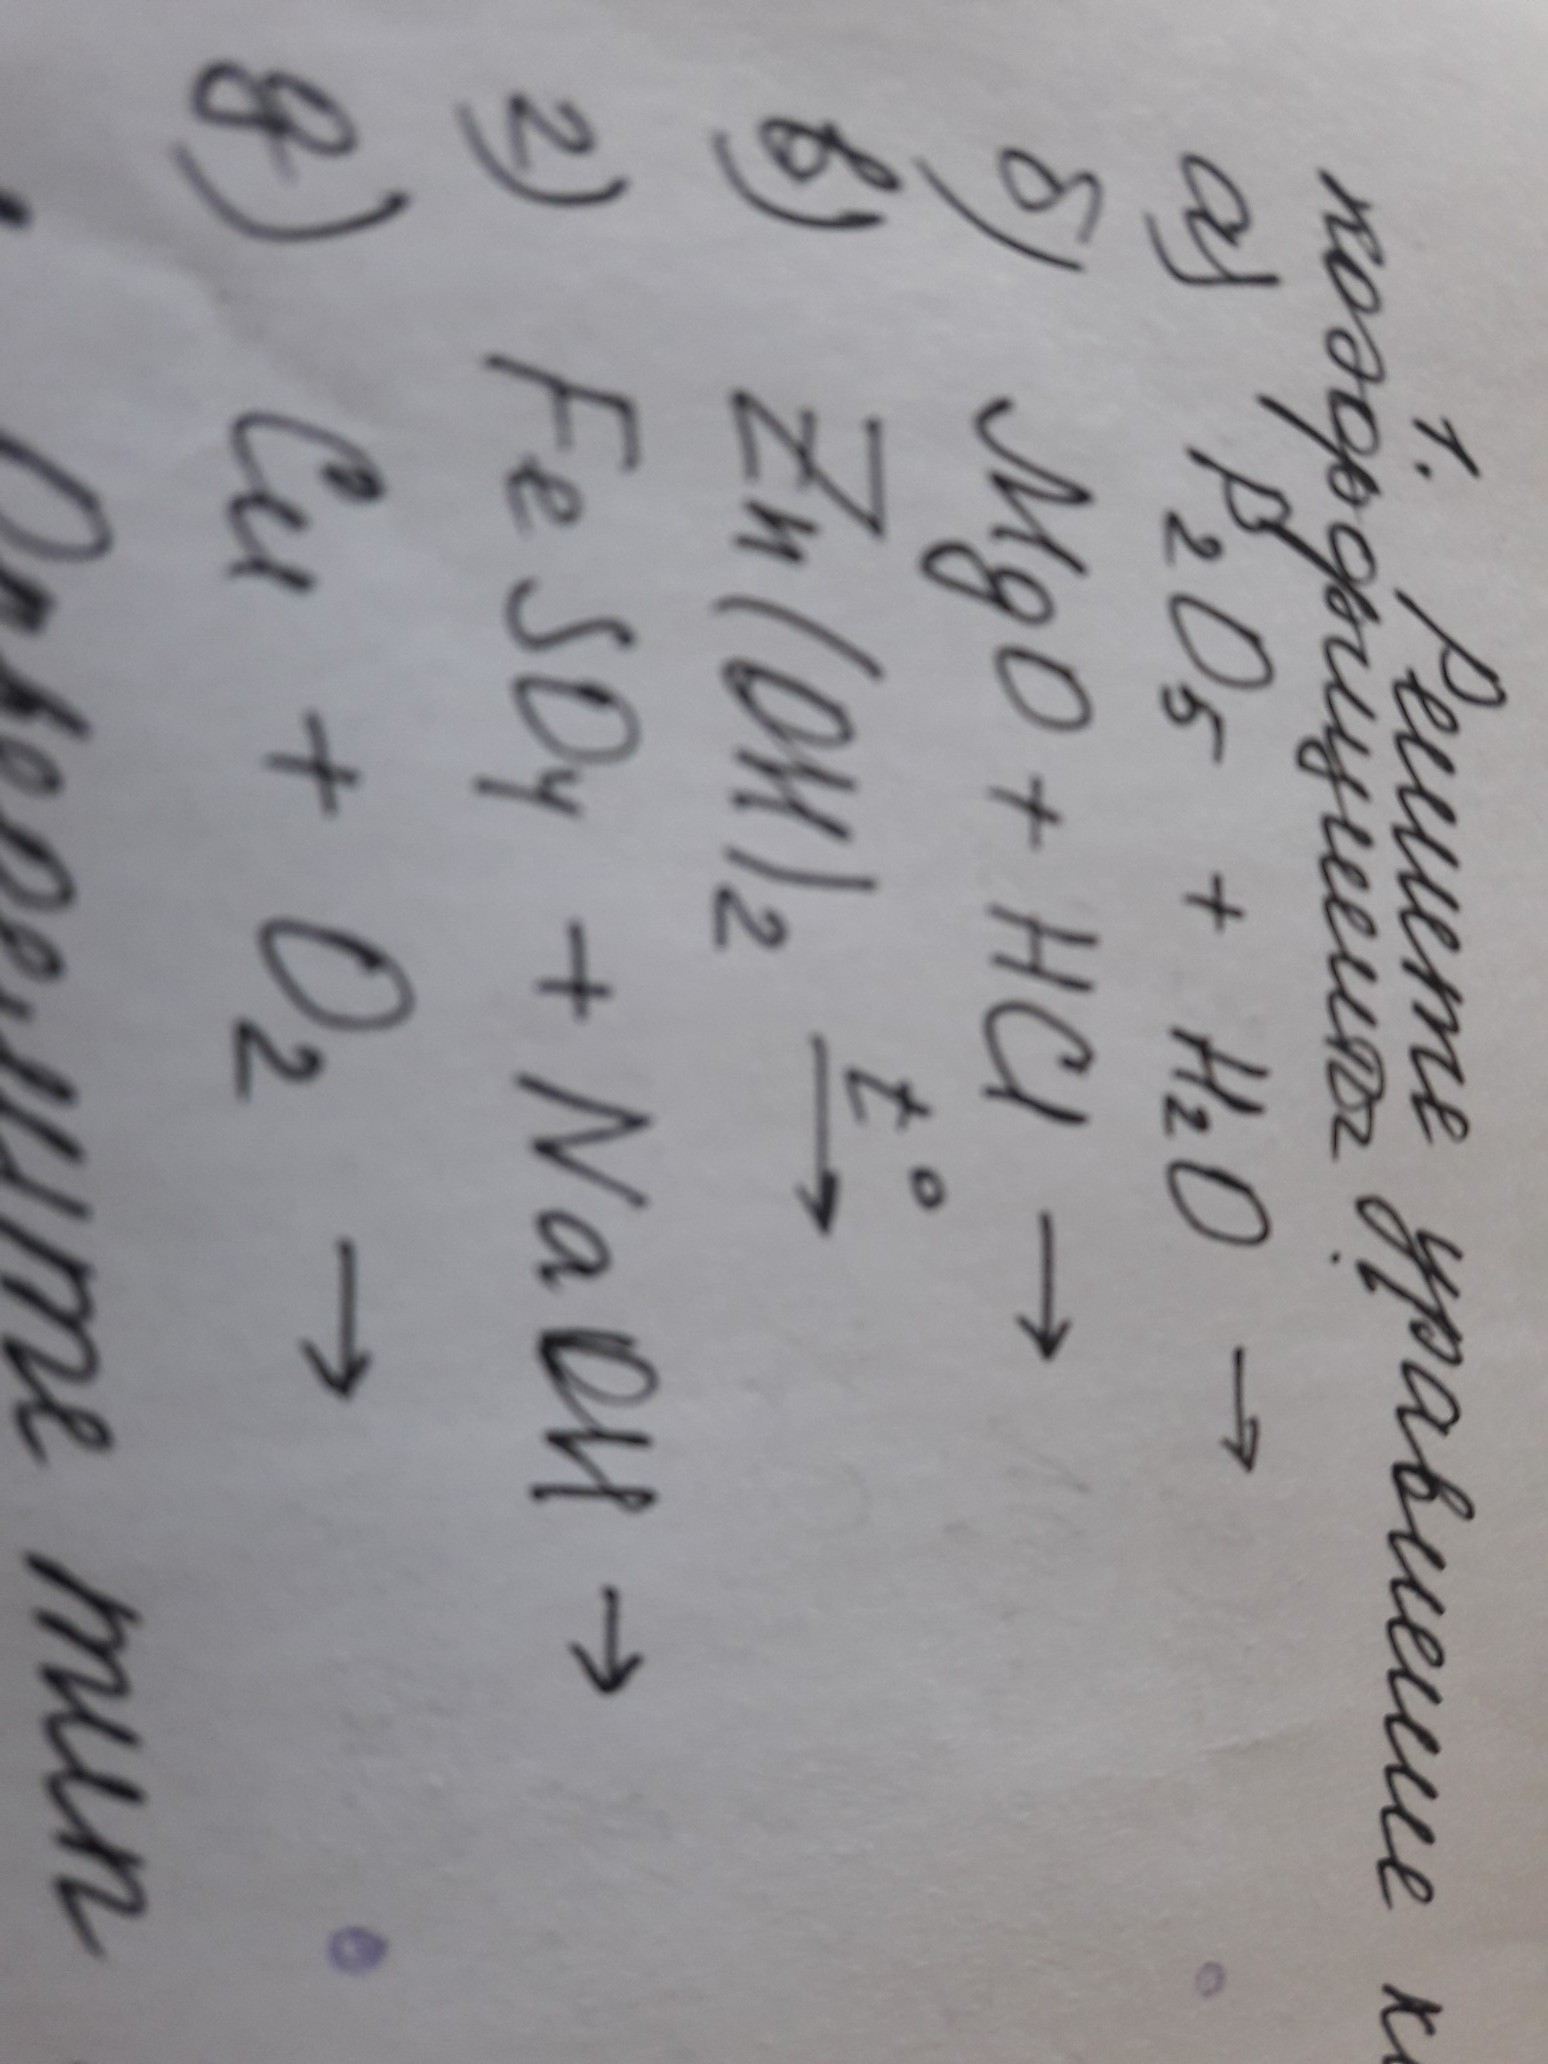 1. Решите уравнение
коэффициенты.
а) P₂O₅ + H₂O →
б) MgO + HCl →
в) Zn(OH)₂ t° →
г) FeSO₄ + NaOH →
д) Cu + O₂ →
Определите тип